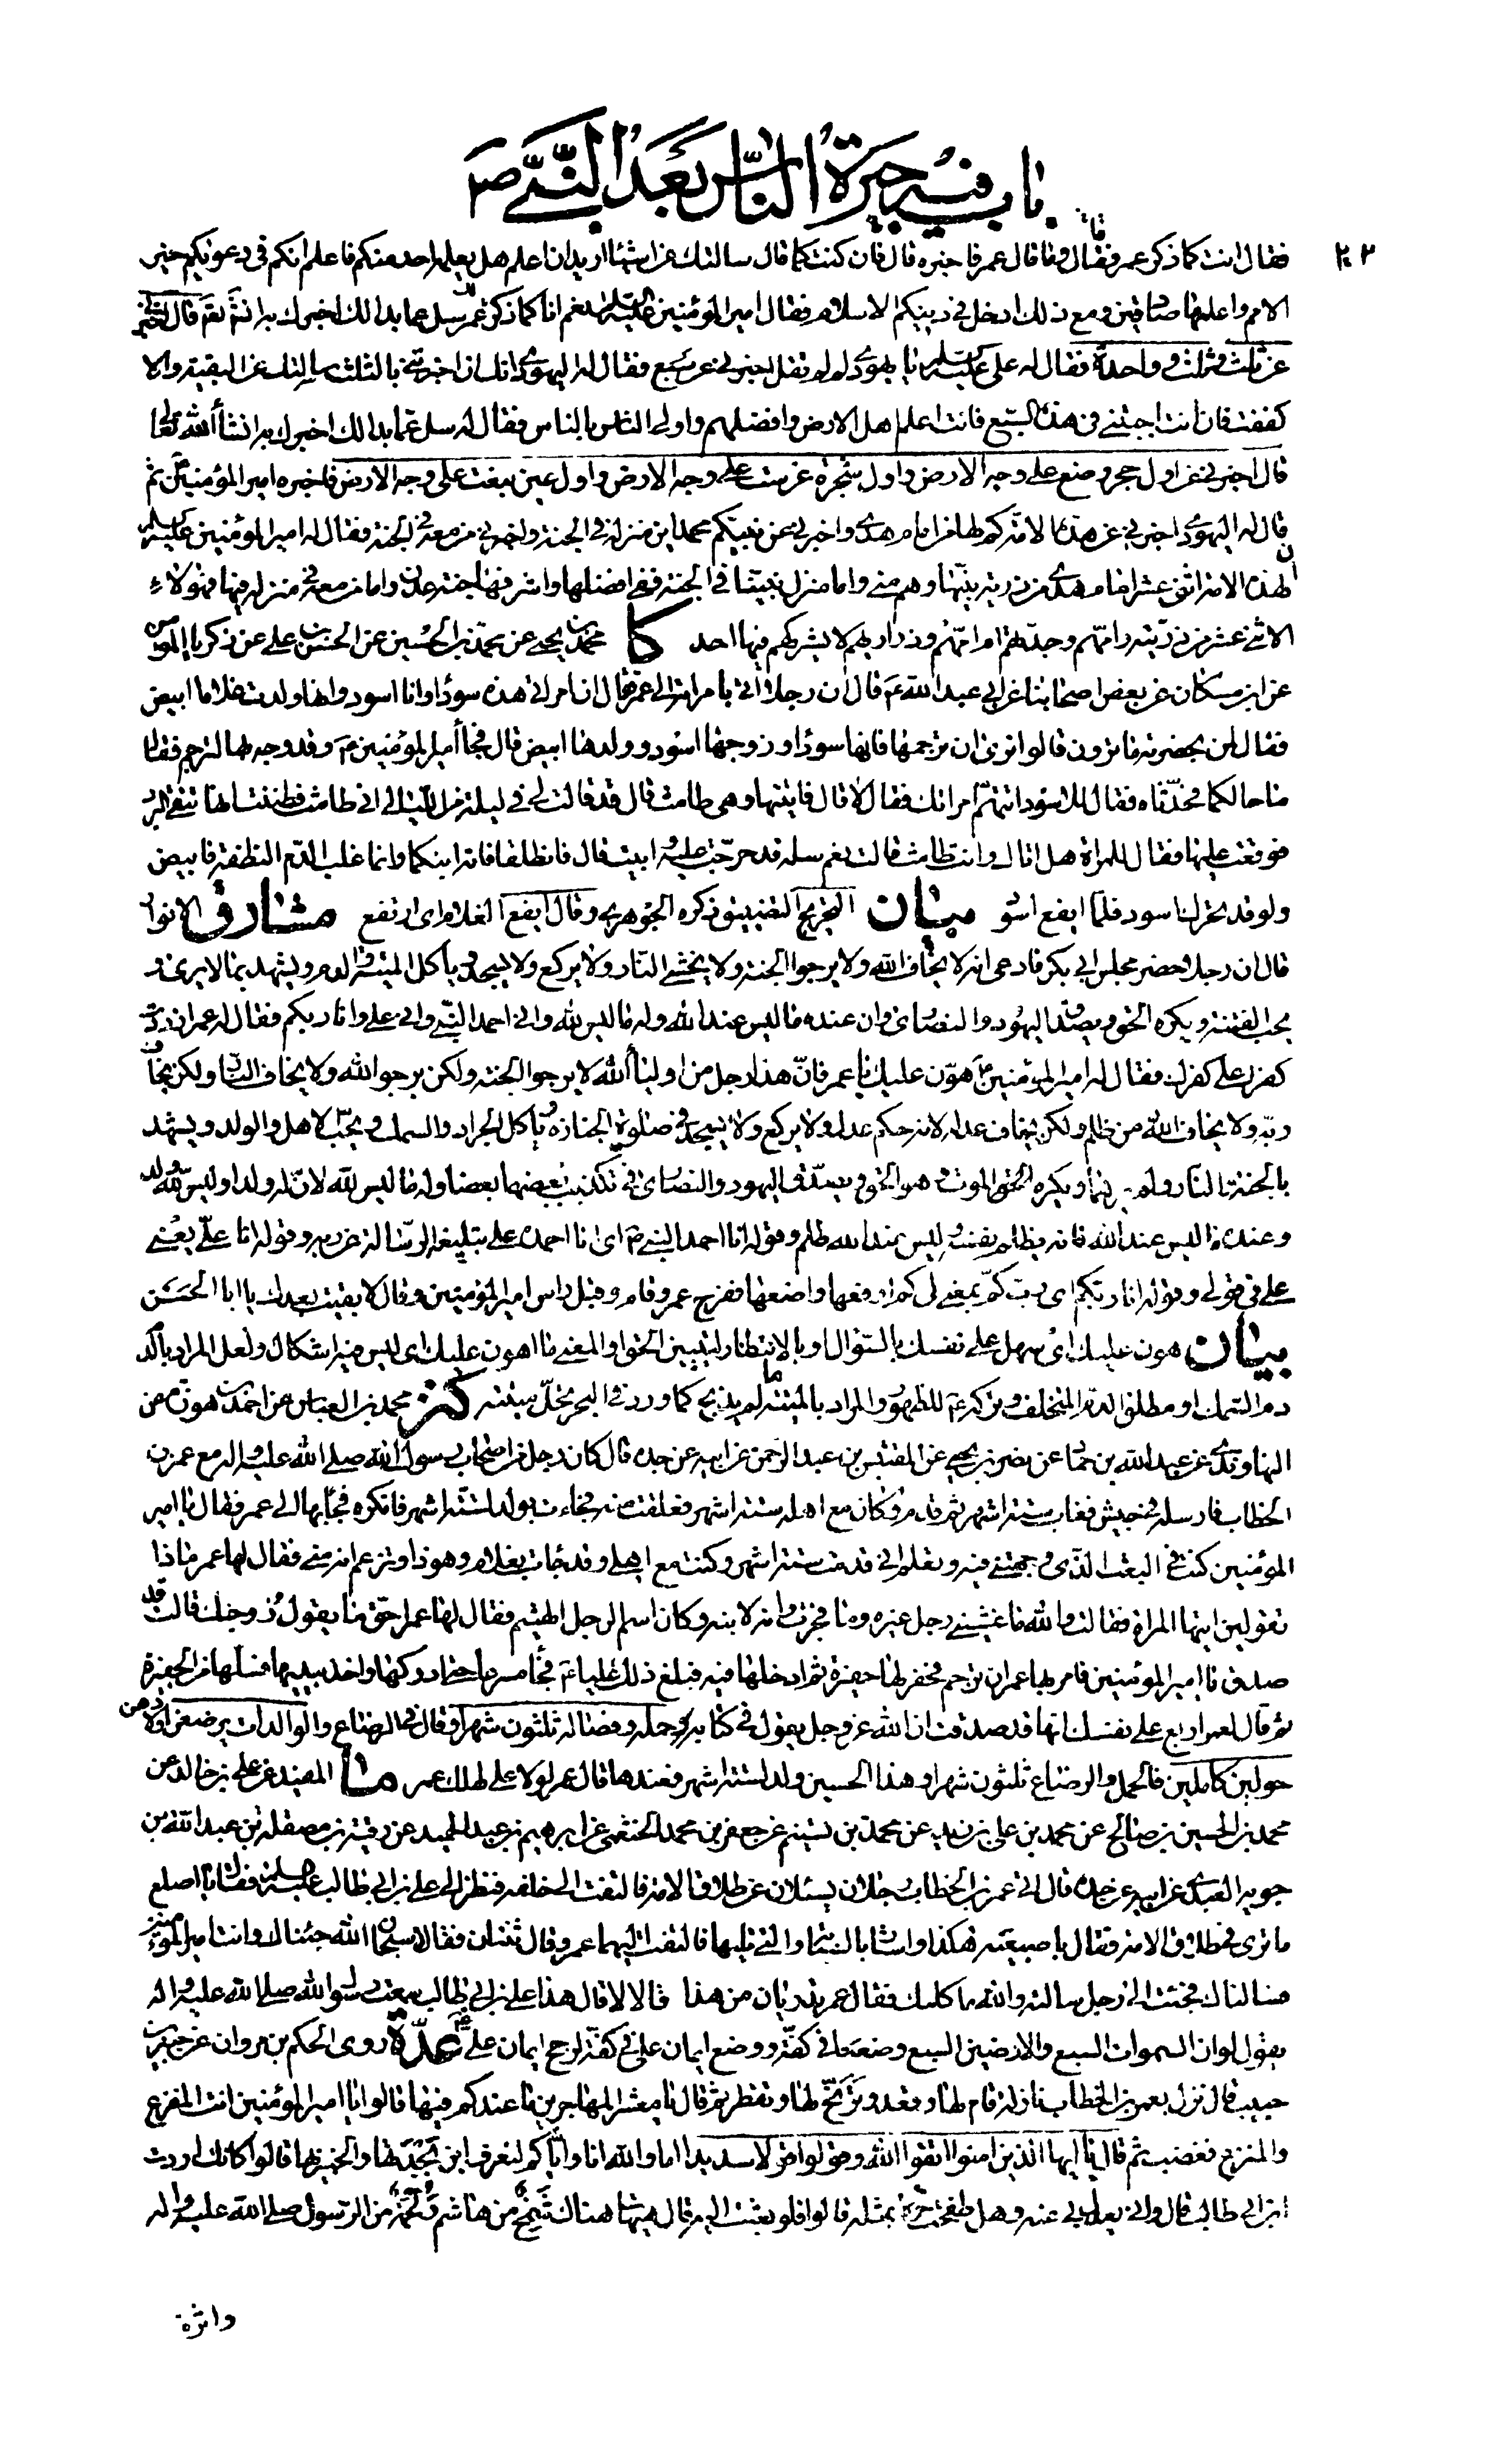 باب فيه حيرة الناس بعد النبي ص
٢٠٣
فقال انت كما ذكر عمر فقال وما قال عمر فاخبره قال فان كنت كما قال سالتك عن اشياء اريد ان اعلم هل يعلمها احد منكم فاعلم انكم في دعواكم خير
الامم واعلمها صادقين ومع ذلك ادخل في دينكم الاسلام فقال امير المؤمنين عليه السلام نعم انا كما ذكر لك عمر سل عما بدا لك اخبرك به انشاء الله تعالى قال اخبرني
عن ثلث وثلث وواحدة فقال له علي عليه السلام يا يهودي لم لم تقل اخبرني عن سبع فقال له اليهودي انك ان اخبرتني بالثلث سالتك عن البقية والا
كففت فان انت اجبتني في هذه السبع فانت اعلم اهل الارض وافضلهم واولى الناس بالناس فقال له سل عما بدا لك اخبرك به انشاء الله تعالى
قال اخبرني عن اول حجر وضع على وجه الارض واول شجرة غرست على وجه الارض واول عين نبعت على وجه الارض فاخبره امير المؤمنين ثم
قال له اليهودي اخبرني عن هذه الامة كم لها من امام هدى واخبرني عن نبيكم محمد اين منزله في الجنة واخبرني من معه في الجنة فقال له امير المؤمنين عليه السلم
ان لهذه الامة اثني عشر امام هدى من ذرية نبيها وهم مني واما منزل نبينا في الجنة ففي افضلها واشرفها جنة عدن واما من معه في منزله فيها فهؤلاء
الاثنى عشر من ذريته وامهم وجدتهم ام امهم وذراريهم لا يشركهم فيها احد كا محمد بن يحيى عن محمد بن الحسين عن الحسن بن علي عن زكريا المومن
عن ابن مسكان عن بعض اصحابنا عن ابي عبد الله ع قال ان رجلا اتى بامراته الى عمر فقال ان امراتي هذه سوداء وانا اسود وانها ولدت غلاما ابيض
فقال لمن بحضرته ما ترون قالوا نرى ان ترجمها فانها سوداء وزوجها اسود وولدها ابيض قال فجاء امير المؤمنين ع وقد وجه بها لترجم فقال
ما حالكما فحدثاه فقال للاسود اتتهم امراتك فقال لا قال فاتيتها وهي طامث قال قد قالت لي في ليلة من الليالي اني طامث فظننت انها تتقي البرد
فوقعت عليها فقال للمراة هل اتاك وانت طامث قالت نعم سله قد حرجت عليه وابيت قال فانطلقا فانه ابنكما وانما غلب الدم النطفة فابيض
ولو قد تحرك اسود فلما ايفع اسود بيان التحريج التضييق ذكره الجوهري وقال ايفع الغلام اي ارتفع مشارق الانوار
قال ان رجلا حضر مجلس ابي بكر فادعى انه لا يخاف الله ولا يرجوا الجنة ولا يخشى النار ولا يركع ولا يسجد وياكل الميتة والدم ويشهد بما لا يرى و
يحب الفتنة ويكره الحق ويصدق اليهود والنصارى وان عنده ما ليس عند الله وله ما ليس لله واني احمد النبي واني علي وانا ربكم فقال له عمر ازددت
كفرا على كفرك فقال له امير المؤمنين ع هون عليك يا عمر فان هذا رجل من اولياء الله لا يرجو الجنة ولكن يرجو الله ولا يخاف النار ولكن يخاف
ربه ولا يخاف الله من ظلم ولكن يخاف عدله لانه حكم عدل ولا يركع ولا يسجد في صلوة الجنازة وياكل الجراد والسمك ويحب الاهل والولد ويشهد
بالجنة والنار ولم يرهما ويكره الحق الموت وهو الحق ويصدق اليهود والنصارى في تكذيب بعضها بعضا وله ما ليس لله لان له ولدا وليس لله ولد
وعنده ما ليس عند الله فانه يظلم نفسه وليس عند الله ظلم وقوله انا احمد النبي ص اي انا احمده على تبليغه الرسالة عن ربه وقوله انا علي يعني
علي في قولي وقوله انا ربكم اي رب كم بمعنى لي كم ارفعها واضعها ففرح عمر وقام وقبل راس امير المؤمنين وقال لا بقيت بعدك يا ابا الحسن
بيان هون عليك اي سهل على نفسك بالسؤال او بالانتظار ليتبين الحق او المعنى ما اهون عليك اي ليس فيه اشكال ولعل المراد بالدم
دم السمك او مطلق الدم المتخلف وتركه ع للظهور والمراد بالميتة ما لم يذبح كما ورد في البحر يحل ميتته كنز محمد بن العباس عن احمد بن هوذة عن
النهاوندي عن عبد الله بن حماد عن نصر بن يحيى عن المقتبس بن عبد الرحمن عن ابيه عن جده قال كان رجل من اصحاب رسول الله صلى الله عليه واله مع عمر بن
الخطاب فارسله في جيش فغاب ستة اشهر ثم قدم وكان مع اهله ستة اشهر فعلقت منه فجاءت بولد لستة اشهر فانكره فجاء بها الى عمر فقال يا امير
المؤمنين كنت في البعث الذي وجهتني فيه وتعلم اني قدمت ستة اشهر وكنت مع اهلي وقد جاءت بغلام وهو ذا وتزعم انه مني فقال لها عمر ماذا
تقولين ايتها المراة فقالت والله ما غشيني رجل غيره وما فجرت وانه لابنه وكان اسم الرجل الهيثم فقال لها عمر احق ما يقول زوجك قالت قد
صدق يا امير المؤمنين فامر بها عمر ان ترجم فحفر لها حفرة ثم ادخلها فيه فبلغ ذلك عليا ع فجاء مسرعا حتى ادركها واخذ بيديها فسلها من الحفرة
ثم قال لعمر اربع على نفسك انها قد صدقت ان الله عز وجل يقول في كتابه وحمله وفصاله ثلثون شهرا وقال في الرضاع والوالدات يرضعن اولادهن
حولين كاملين فالحمل والرضاع ثلثون شهرا وهذا الحسين ولد لستة اشهر فعندها قال عمر لولا علي لهلك عمر ما المفيد عن علي بن خالد عن
محمد بن الحسين بن صالح عن محمد بن علي بن زيد عن محمد بن تسنيم عن جعفر بن محمد الخثعمي عن ابراهيم بن عبد الحميد عن رقبة بن مصقلة بن عبد الله بن
جوية العبدي عن ابيه عن جده قال اتى عمر بن الخطاب رجلان يسئلان عن طلاق الامة فالتفت الى خلفه فنظر الى علي بن ابي طالب عليه السلم فقال يا اصلع
ما ترى في طلاق الامة فقال باصبعيه هكذا واشار بالسبابة والتي تليها فالتفت اليهما عمر وقال ثنتان فقالا سبحان الله جئناك وانت امير المؤمنين
فسالناك فجئت الى رجل سالته والله ما كلمك فقال عمر تدريان من هذا قالا لا قال هذا علي بن ابي طالب سمعت رسول الله صلى الله عليه واله
يقول لو ان السموات السبع والارضين السبع وضعتا في كفة ووضع ايمان علي في كفة لرجح ايمان علي عدة روى الحكم بن مروان عن جبير بن
حبيب قال نزل بعمر بن الخطاب نازلة قام لها وقعد وترنح لها وتقطر ثم قال يا معشر المهاجرين ما عندكم فيها قالوا يا امير المؤمنين انت المفزع
والمنزع فغضب ثم قال يا ايها الذين امنوا اتقوا الله وقولوا قولا سديدا اما والله انا واياكم لنعرف ابن بجدتها والخبير بها قالوا كانك اردت
ابن ابي طالب قال واني يعدل بي عنه وهل طفحت حرة بمثله قالوا فلو بعثت اليه قال هيهات هناك شمخ من هاشم ولحمة من الرسول صلى الله عليه واله
واثرة